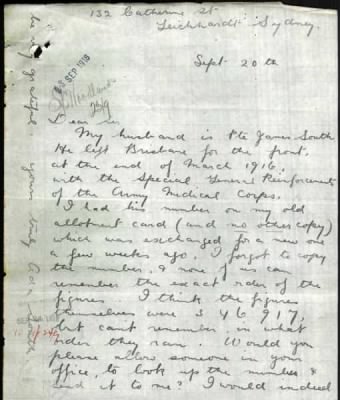 132 Catherine St
Leichhardt Sydney.
Sept 20th
SEP 1918
Dear Sir
My husband is Pte James South
He left Brisbane for the front,
at the end of March 1916,
with the Special General Reinforcements
of the Army Medical Corps.
I had his number on my old
allotment card (and no other copy)
which was exchanged for a new one
a few weeks ago. I forgot to copy
the number, & none of us can
remember the exact order of the
figures. I think the figures
themselves were 3 4 6 9 1 7,
but cant remember, in what
order they ran. Would you
please allow someone in your
office, to look up the number &
send it to me? I would indeed
be very grateful. Yours truly
South